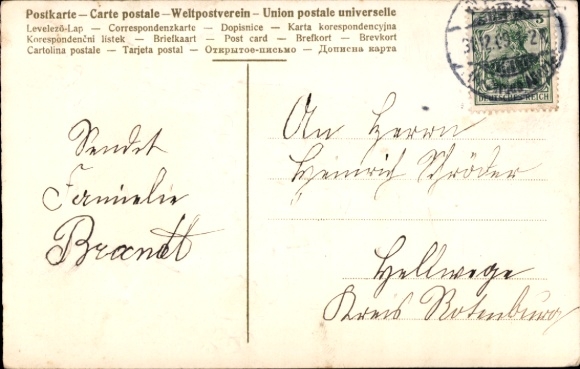 Postkarte — Carte postale — Weltpostverein — Union postale universelle
Levelező-Lap — Correspondenzkarte — Dopisnice — Karta korespondencyjna
Korespondenční listek — Briefkaart — Post card — Brefkort — Brevkort
Cartolina postale — Tarjeta postal — Открытое-письмо — Дописна карта
DEUTSCHES REICH
Sendet
Famielie
Brandt
An Herrn
Heinrich Schröder
Hellwege
Kreis Rotenburg